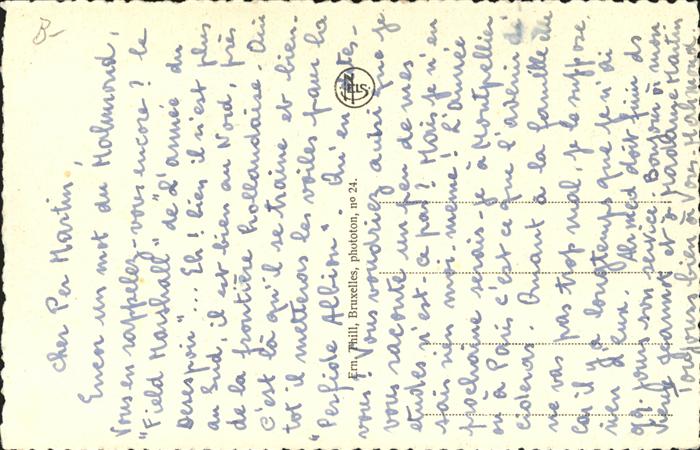 Cher Per Martin,
Encor un mot du Malmond,
Vous en rappelez-vous encore ? le
"Field Marshall" de "L'année du
Desespoir"... Eh ! bien il n'est plus
au Sud, il est bien au Nord, près
de la frontière hollandaise. Oui
c'est là qu'il se traine et bien-
tot il mettera les voiles pour la
"Perfide Albion". Qu'en
vous ! Vous voudriez aussi que je
vous raconte un peu de mes
etudes n'est-ce pas ? Mais je n'en
sais rien moi-même ! L'année
prochaine serais-je à Montpellier
ou à Paris c'est ce que l'avenir
Quant à la famille
ne vas pas trop mal, je le suppose
car il y a longtemps que je n'ai
rien d'eux. Ahmed doit finir ds
qq. jours son service. Bonjour à mon
vieux et à Madame Martin
B-
ELS
Ern. Thill, Bruxelles, phototon, no 24.